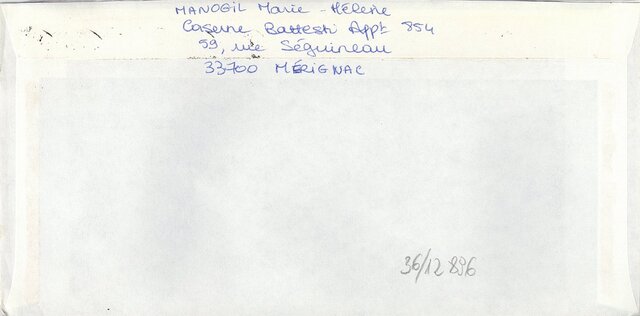 MANOGIL Marie - Hélène
Caserne Battesti Appt 854
99, rue Séguineau
33700 MÉRIGNAC
36/12 896